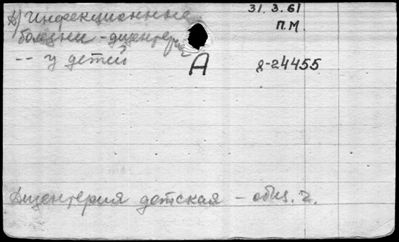 А) Инфекционные
болезни - дизентерия
-- у детей
31.3.61
П.М.
А
8-24455
Дизентерия детская - общ. г.